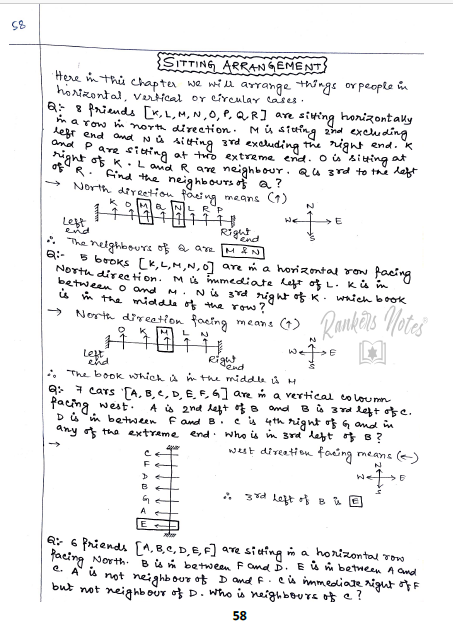 58
SITTING ARRANGEMENT
Here in this chapter we will arrange things or people in
horizontal, vertical or circular cases.
Q:- 8 friends [K, L, M, N, O, P, Q, R] are sitting horizontally
in a row in north direction. M is sitting 2nd excluding
left end and N is sitting 3rd excluding the right end. K
and P are sitting at two extreme end. O is sitting at
right of K. L and R are neighbour. Q is 3rd to the left
of R. Find the neighbours of Q?
→ North direction facing means (↑)
K O M Q N L R P
Left end
Right end
N
W E
S
∴ The neighbours of Q are M & N
Q:- 5 books [K, L, M, N, O] are in a horizontal row facing
North direction. M is immediate left of L. K is in
between O and M. N is 3rd right of K. Which book
is in the middle of the row?
→ North direction facing means (↑)
O K M L N
Left end
Right end
N
W E
S
Rankers Notes
∴ The book which is in the middle is M
Q:- 7 cars [A, B, C, D, E, F, G] are in a vertical coloumn
facing west. A is 2nd left of B and B is 3rd left of C.
D is in between F and B. C is 4th right of G and in
any of the extreme end. Who is in 3rd left of B?
→
west direction facing means (←)
C
F
D
B
G
A
E
N
W E
S
∴ 3rd left of B is E
Q:- 6 friends [A, B, C, D, E, F] are sitting in a horizontal row
facing North. B is in between F and D. E is in between A and
C. A is not neighbour of D and F. C is immediate right of F
but not neighbour of D. Who is neighbours of C?
58